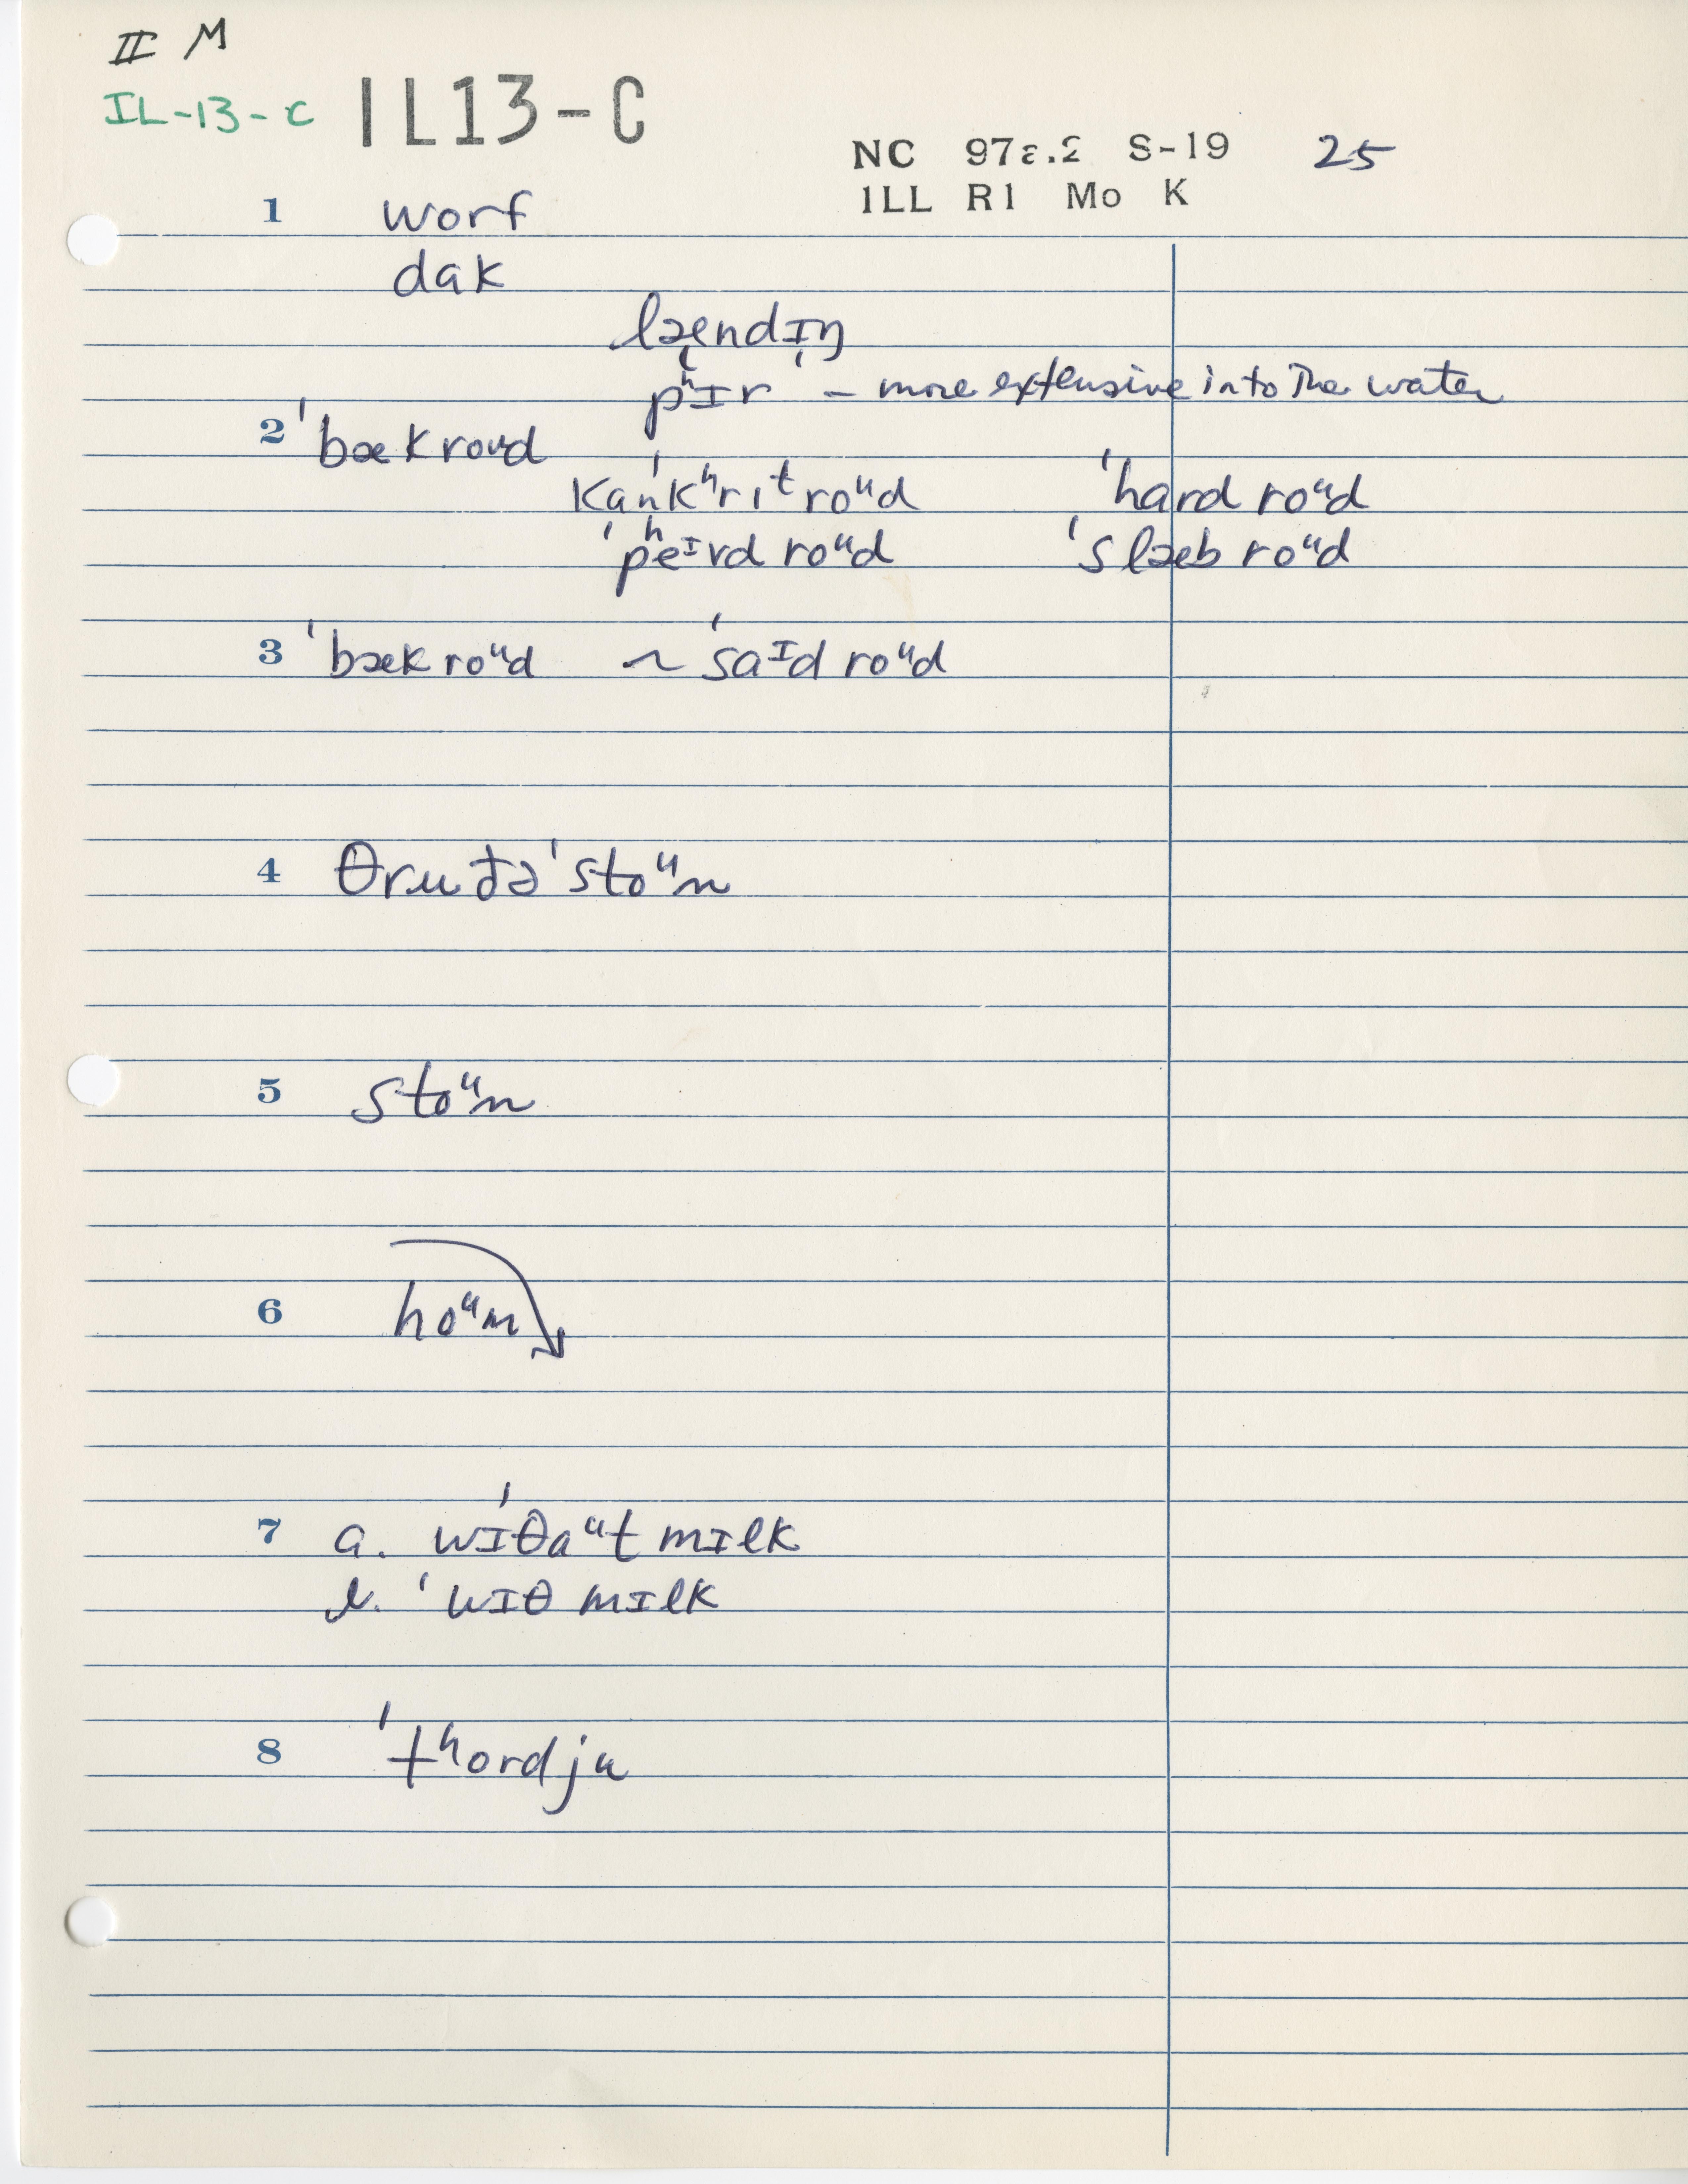 II M
IL-13-C IL13-C
NC 978.2 S-19 25
ILL R1 Mo K
1 worf
dak
lændɪŋ
pʰɪr – more extensive into the water
2 ˈbækroᵘd
ˈkankʰritroᵘd ˈhardroᵘd
ˈpʰeᶦvd roᵘd ˈslæb roᵘd
3 ˈbækroᵘd ~ ˈsaᶦd roᵘd
4 θru ðə ˈstoᵘn
5 stoᵘn
6 hoᵘm
7 a. ˈwɪθaᵘt mɪlk
b. ˈwɪθ mɪlk
8 ˈtʰordju